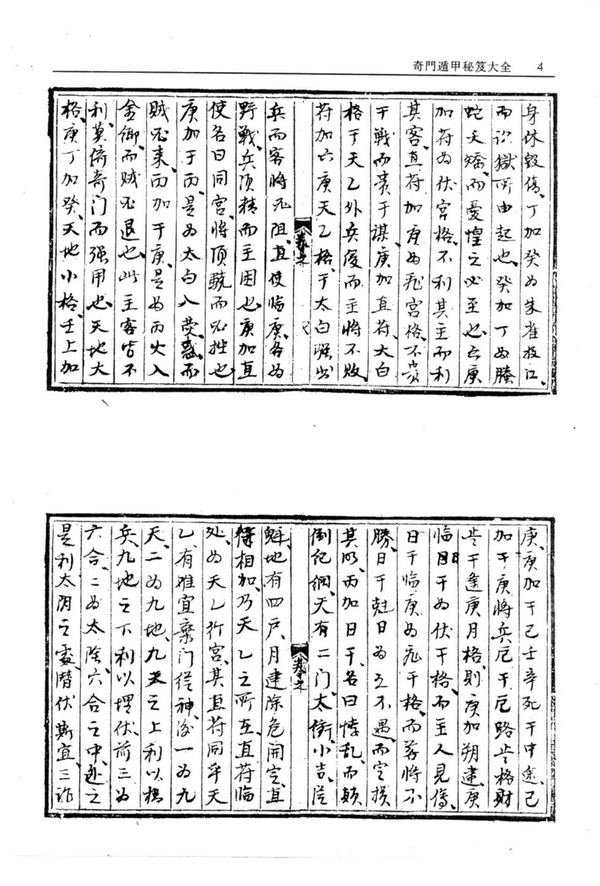 奇門遁甲秘笈大全 4
身休毀傷、丁加癸為朱雀投江、
而訟獄所由起也、癸加丁為螣
蛇夭矯、而憂惶之必至也、六庚
加符為伏宮格、不利其主而利
其客、直符加庚為飛宮格、不貴
于戰而貴于謀、庚加直符、大白
格于天乙、外兵侵而主將不敗
符加六庚、天乙格于太白、强出
卷之
兵而客將死阻、直使臨庚、名為
野戰、兵須精而主困也、庚加直
使名曰同宮、將頂驍而必挫也
庚加于丙、是為太白入熒惑、而
賊必来、丙加于庚、是為丙火入
金鄉、而賊必退也、此主客皆不
利、莫倚奇门而强用也、天地大
格、庚丁加癸、天地小格、壬上加
庚、庚加于己、壬辛死于中途、己
加于庚、將兵厄于厄路、是格財
是于逢庚、月格則庚加朔建、庚
臨日干為伏干格、而主人見傷、
日干臨庚為飛干格、而簽將不
勝、日干尅日為五不遇、而定損
其明、丙加日干、名曰悖乱、而顛
倒纪綱、天有二门、太衝小吉、從
卷之
魁、地有四户、月建除危開定、直
符相加、乃天乙之所在、直符臨
处、為天乙行宮、其直符同乎天
乙、有雅宜棄门從神、後一為九
天、二為九地、九天之上利以揚
兵、九地之下利以埋伏、前三為
六合、二為太陰、六合之中、逃之
是利、太阴之處、潜伏斯宜、三诈